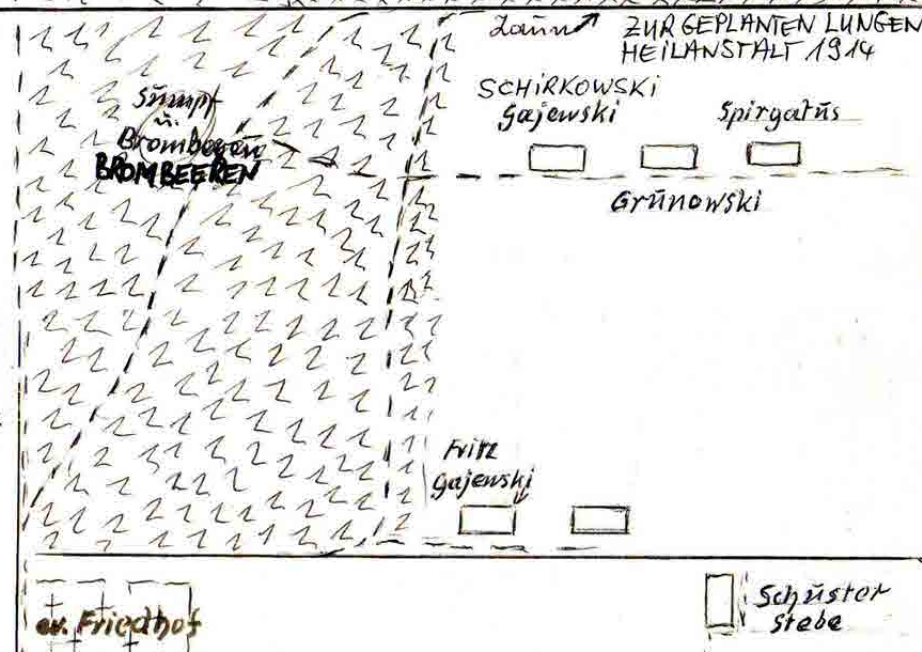 Zaun
ZUR GEPLANTEN LUNGEN
HEILANSTALT 1914
Sumpf
u.
Brombeeren
BROMBEEREN
SCHIRKOWSKI
Gajewski
Spirgatus
Grunowski
Fritz
Gajewski
ev. Friedhof
Schuster
Stebe